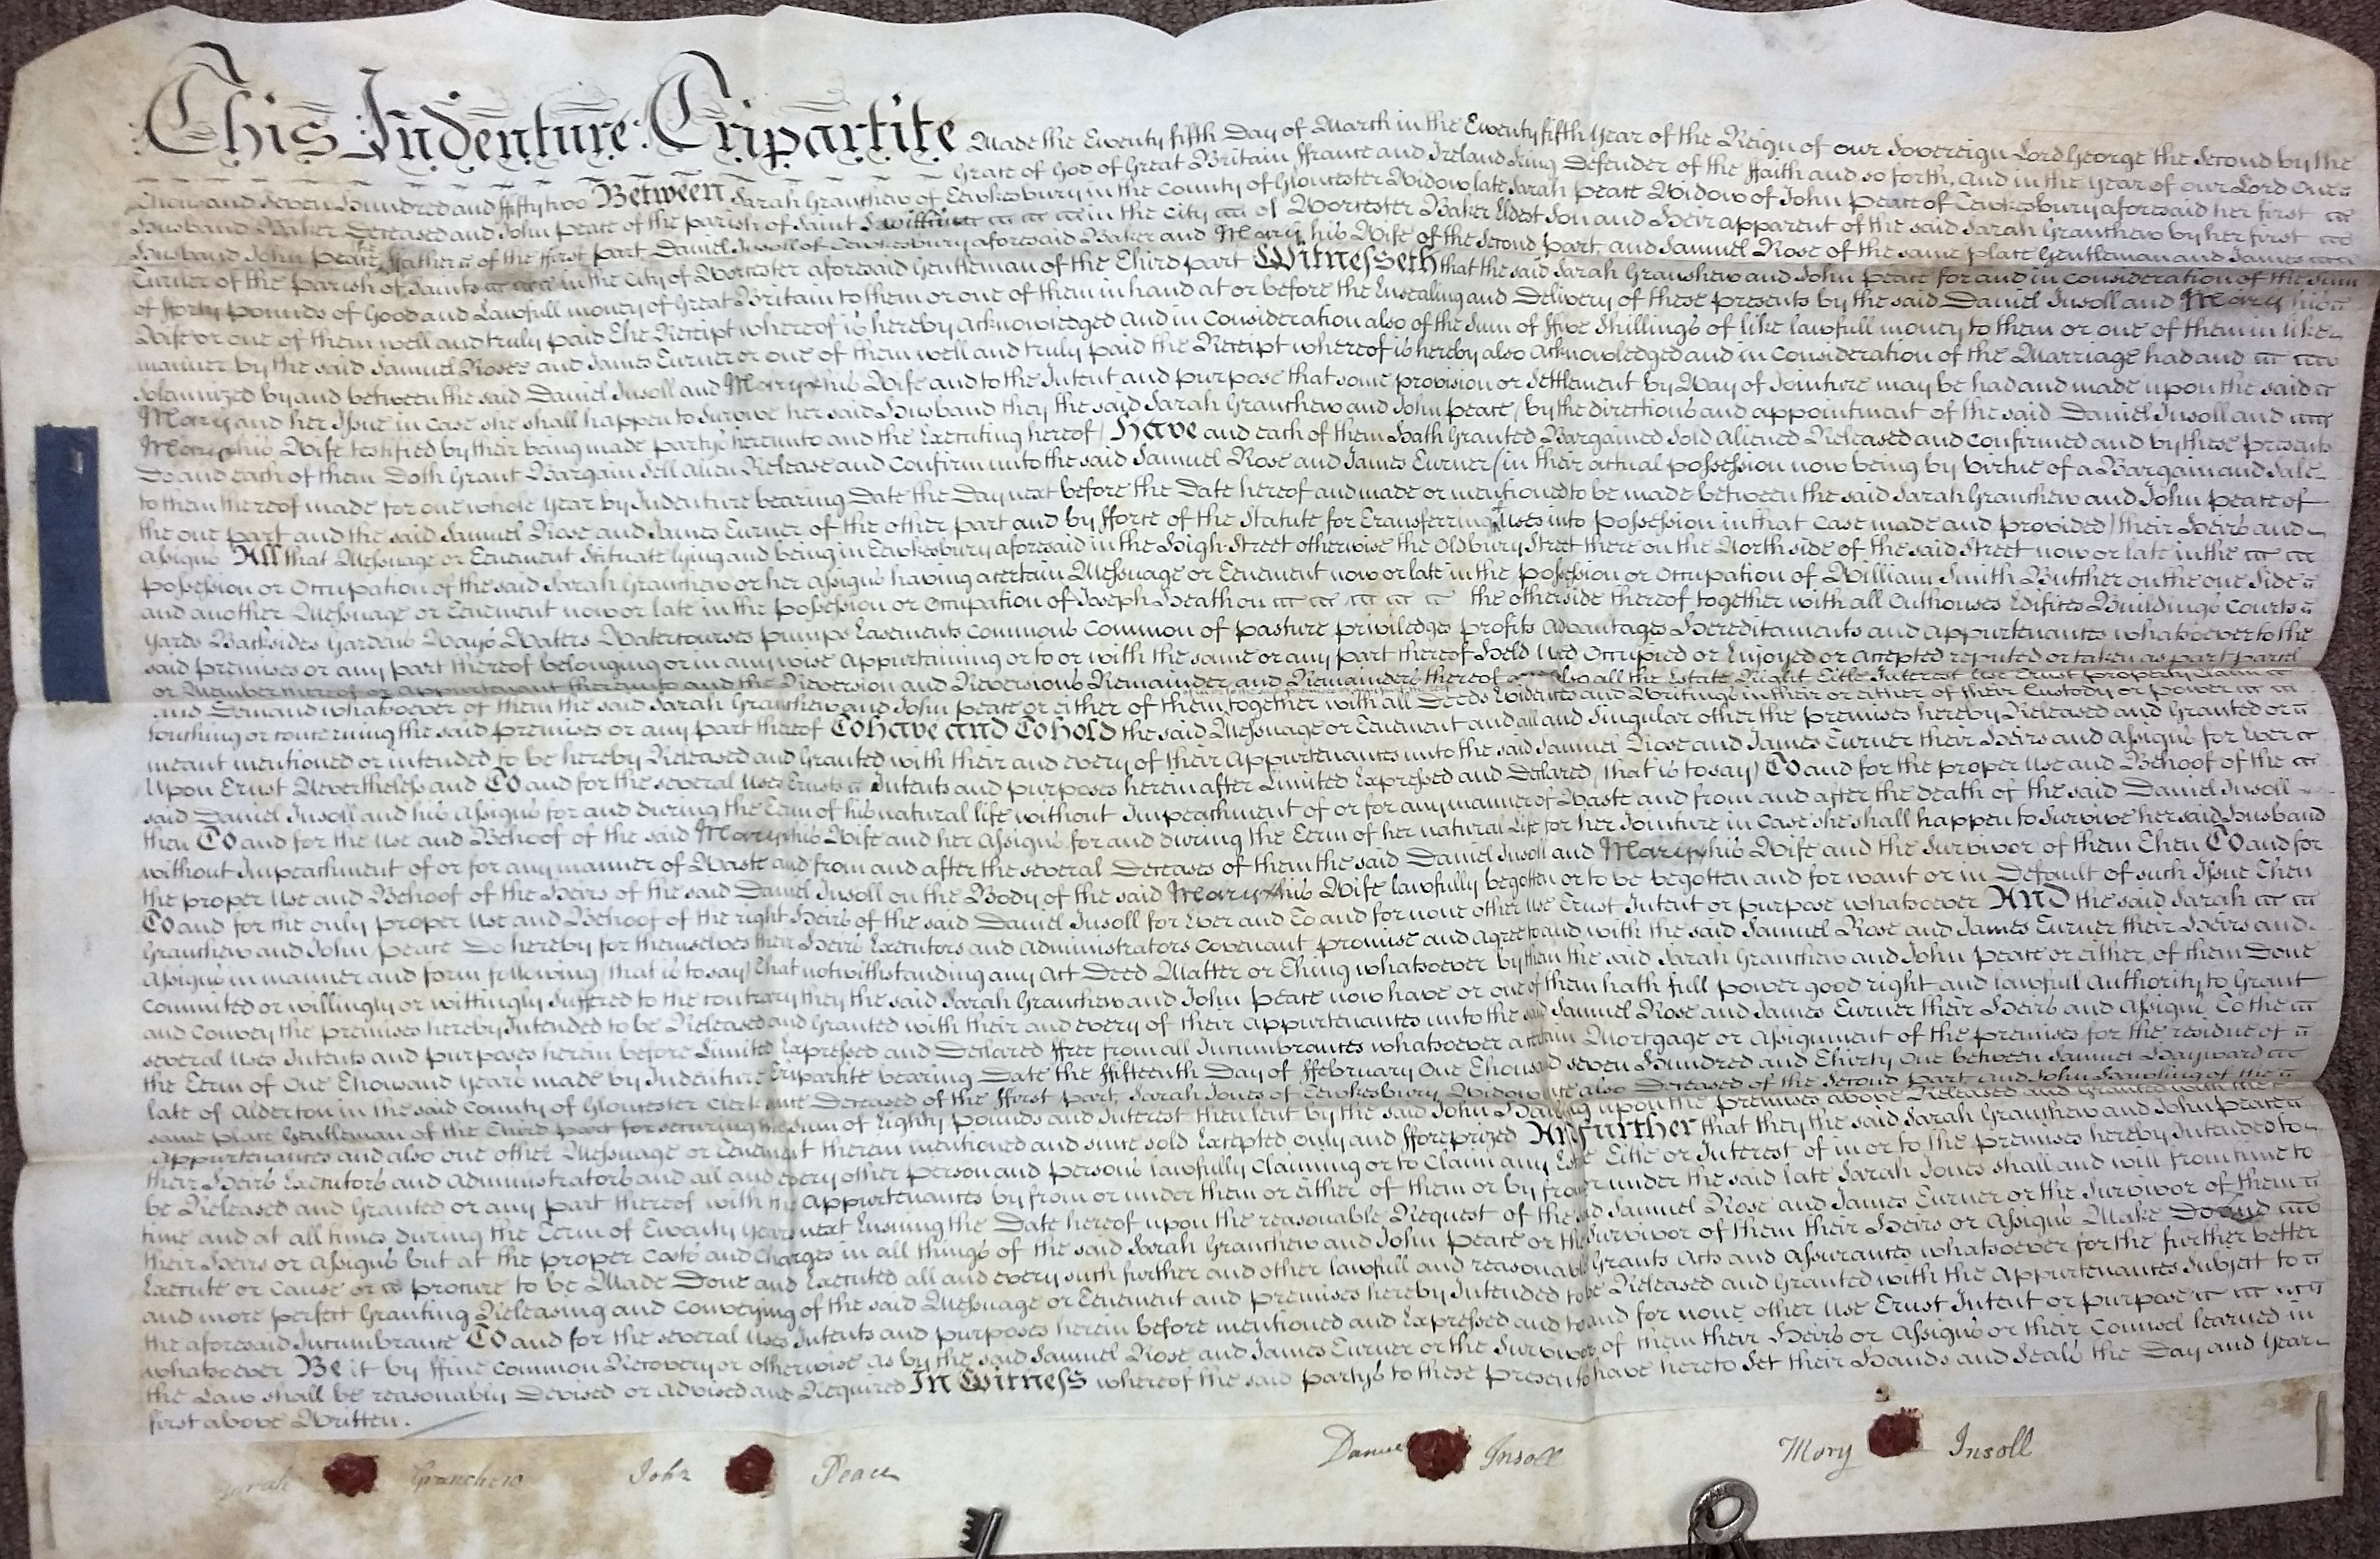 This Indenture Tripartite Made the Twenty fifth Day of March in the Twenty fifth Year of the Reign of our Sovereign Lord George the Second by the
Grace of God of Great Britain ffrance and Ireland King Defender of the ffaith and so forth, And in the Year of our Lord One
Thousand Seven Hundred and ffifty two Between Sarah Granchew of Tewkesbury in the County of Gloucester Widow late Sarah Peace Widow of John Peace of Tewkesbury aforesaid her first
Husband Baker Deceased and John Peace of the parish of Saint Swithins in the City of Worcester Baker Eldest Son and Heir apparent of the said Sarah Granchew by her first
Husband John Peace his ffather of the ffirst part Daniel Insoll of Tewkesbury aforesaid Baker and Mary his Wife of the Second part, and Samuel Rose of the same place Gentleman and James
Turner of the Parish of Saints in the City of Worcester aforesaid Gentleman of the Third part Witnesseth that the said Sarah Granchew and John Peace for and in Consideration of the Sum
of fforty pounds of Good and Lawfull money of Great Britain to them or one of them in hand at or before the Ensealing and Delivery of these presents by the said Daniel Insoll and Mary his
Wife or one of them well and truly paid The Receipt whereof is hereby Acknowledged And in Consideration also of the Sum of ffive Shillings of like lawfull money to them or one of them in like
manner by the said Samuel Rose and James Turner or one of them well and truly paid the Receipt whereof is hereby also Acknowledged and in Consideration of the Marriage had and
Solemnized by and between the said Daniel Insoll and Mary his Wife and to the Intent and purpose that some provision or Settlement by Way of Jointure may be had and made upon the said
Mary and her Issue in Case she shall happen to Survive her said Husband they the said Sarah Granchew and John Peace (by the directions and appointment of the said Daniel Insoll and
Mary his Wife testified by their being made partys hereunto and the Executing hereof) Have and each of them Hath Granted Bargained Sold Aliened Released and Confirmed and by these presents
Do and each of them Doth Grant Bargain Sell Alien Release and Confirm unto the said Samuel Rose and James Turner (in their actual possession now being by Virtue of a Bargain and Sale
to them thereof made for one whole Year by Indenture bearing Date the Day next before the Date hereof and made or mentioned to be made between the said Sarah Granchew and John Peace of
the one part and the said Samuel Rose and James Turner of the other part and by fforce of the Statute for Transferring Uses into Possession in that Case made and provided) their Heirs and
Assigns All that Messuage or Tenement Scituate lying and being in Tewkesbury aforesaid in the High Street otherwise the Oldbury Street there on the North side of the said Street now or late in the
possession or Occupation of the said Sarah Granchew or her Assigns having a certain Messuage or Tenement now or late in the possession or Occupation of William Smith Butcher on the one Side
and another Messuage or Tenement now or late in the possession or Occupation of Joseph Heath on the otherside thereof together with all Outhouses Edifices Buildings Courts
Yards Backsides Gardens Ways Waters Watercourses pumps Easements Commons Common of pasture priviledges profits Advantages Hereditaments and Appurtenances whatsoever to the
said premises or any part thereof belonging or in any wise Appurtaining or to or with the same or any part thereof Held Used Occupied or Enjoyed or Accepted reputed or taken as part parcel
or Member thereof or appurtenant thereunto and the Reversion and Reversions Remainder and Remainders thereof also all the Estate Right Title Interest Use Trust Property Claim
and Demand whatsoever of them the said Sarah Granchew and John Peace or either of them together with all Deeds Evidences and Writings in their or either of their Custody or power
touching or concerning the said premises or any part thereof To have and To hold the said Messuage or Tenement and all and Singular other the premises hereby Released and Granted or
meant mentioned or intended to be hereby Released and Granted with their and every of their Appurtenances unto the said Samuel Rose and James Turner their Heirs and Assigns for Ever
Upon Trust Nevertheless and To and for the several Uses Trusts Intents and purposes herein after Limited Expressed and Declared (that is to say) To and for the proper Use and Behoof of the
said Daniel Insoll and his Assigns for and during the Term of his natural life without Impeachment of or for any manner of Waste and from and after the death of the said Daniel Insoll
then To and for the Use and Behoof of the said Mary his Wife and her Assigns for and during the Term of her natural Life for her Jointure in Case she shall happen to Survive her said Husband
without Impeachment of or for any manner of Waste and from and after the several Deceases of them the said Daniel Insoll and Mary his Wife and the Survivor of them Then To and for
the proper Use and Behoof of the Heirs of the said Daniel Insoll on the Body of the said Mary his Wife lawfully begotten or to be begotten and for want or in Default of such Issue Then
To and for the only proper Use and Behoof of the right Heirs of the said Daniel Insoll for Ever and To and for none other Use Trust Intent or purpose whatsoever And the said Sarah
Granchew and John Peace Do hereby for themselves their Heirs Executors and Administrators Covenant promise and Agree to and with the said Samuel Rose and James Turner their Heirs and
Assigns in manner and form following (that is to say) That notwithstanding any Act Deed Matter or Thing whatsoever by them the said Sarah Granchew and John Peace or either of them Done
Committed or willingly or wittingly Suffered to the contrary they the said Sarah Granchew and John Peace now have or one of them hath full power good right and lawfull Authority to Grant
and Convey the premises hereby Intended to be Released and Granted with their and every of their Appurtenances unto the said Samuel Rose and James Turner their Heirs and Assigns To the
several Uses Intents and purposes herein before Limited Expressed and Declared ffree from all Incumbrances whatsoever a certain Mortgage or Assignment of the premises for the residue of
the Term of One Thousand Years made by Indenture Tripartite bearing Date the ffifteenth Day of ffebruary One Thousand seven Hundred and Thirty One between Samuel Hayward
late of Alderton in the said County of Gloucester Clerk since Deceased of the ffirst part, Sarah Jones of Tewkesbury Widow since also Deceased of the Second part and John of the
same place Gentleman of the Third part for securing the Sum of Eighty Pounds and Interest then lent by the said John upon the premises above Released and Granted with the
Appurtenances and also one other Messuage or Tenement therein mentioned and since sold Excepted only and fforeprized And further that they the said Sarah Granchew and John Peace
their Heirs Executors and Administrators and all and every other person and persons lawfully Claiming or to Claim any Estate Title or Interest of in or to the premises hereby Intended to
be Released and Granted or any part thereof with the Appurtenances by from or under them or either of them or by from or under the said late Sarah Jones shall and will from time to
time and at all times during the Term of Twenty Years next Ensuing the Date hereof upon the reasonable Request of the said Samuel Rose and James Turner or the Survivor of them
their Heirs or Assigns but at the proper Costs and Charges in all things of the said Sarah Granchew and John Peace or the Survivor of them their Heirs or Assigns Make Do and
Execute or Cause or procure to be Made Done and Executed all and every such further and other lawfull and reasonable Grants Acts and Assurances whatsoever for the further better
and more perfect Granting Releasing and Conveying of the said Messuage or Tenement and premises hereby Intended to be Released and Granted with the Appurtenances Subject to
the aforesaid Incumbrance To and for the several Uses Intents and purposes herein before mentioned and Expressed and to and for none other Use Trust Intent or purpose
whatsoever Be it by ffine Common Recovery or otherwise as by the said Samuel Rose and James Turner or the Survivor of them their Heirs or Assigns or their Counsel learned in
the Law shall be reasonably Devised or Advised and Required In Witness whereof the said partys to these presents have hereto Set their Hands and Seals the Day and Year
first above Written.
Sarah Granchew John Peace Daniel Insoll Mary Insoll